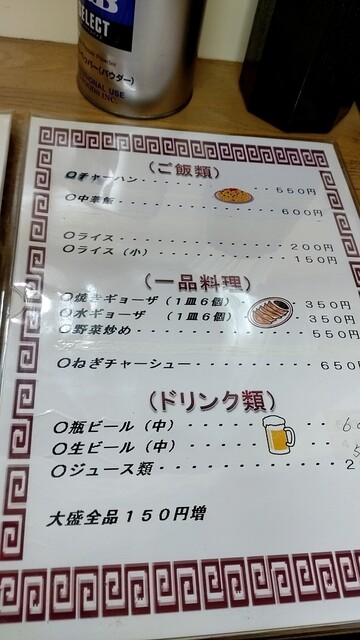 SELECT
パー(パウダー)
(ご飯類)
○チャーハン・・・・・・・・・・550円
○中華飯・・・・・・・・・・600円
○ライス・・・・・・・・・・200円
○ライス(小)・・・・・・・・・・150円
(一品料理)
○焼きギョーザ(1皿6個)・・350円
○水ギョーザ (1皿6個)・・350円
○野菜炒め・・・・・・・・・・550円
○ねぎチャーシュー・・・・・・・・・・650円
(ドリンク類)
○瓶ビール(中)・・・・・・・・・・
○生ビール(中)・・・・・・・・・・
○ジュース類・・・・・・・・・・2
大盛全品150円増